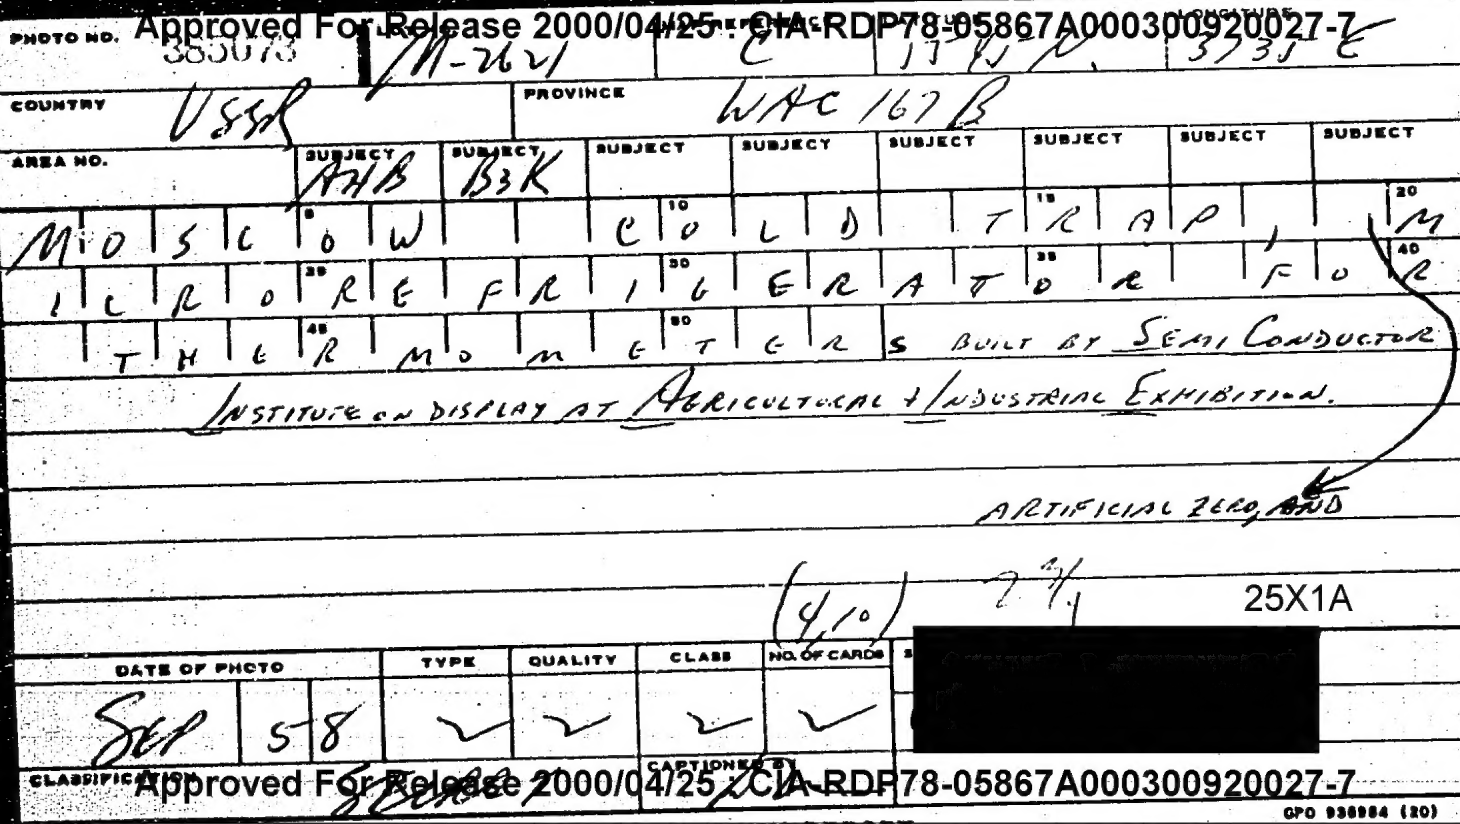 Approved For Release 2000/04/25 : CIA-RDP78-05867A000300920027-7
PHOTO NO. 383073 M-2621 C N. 3735 E
COUNTRY USSR PROVINCE WAC 167 B
AREA NO. SUBJECT AHB SUBJECT B3K SUBJECT SUBJECT SUBJECT SUBJECT SUBJECT SUBJECT
MOSCOW COLD TRAP, M
ICROREFRIGERATOR FOR
THERMOMETERS BUILT BY SEMI CONDUCTOR
INSTITUTE ON DISPLAY AT AGRICULTURAL + INDUSTRIAL EXHIBITION.
ARTIFICIAL ZERO, AND
(4,10)
25X1A
DATE OF PHOTO TYPE QUALITY CLASS NO. OF CARDS
SEP 58
CLASSIFICATION SECRET CAPTIONED BY
Approved For Release 2000/04/25 : CIA-RDP78-05867A000300920027-7
GPO 936984 (20)